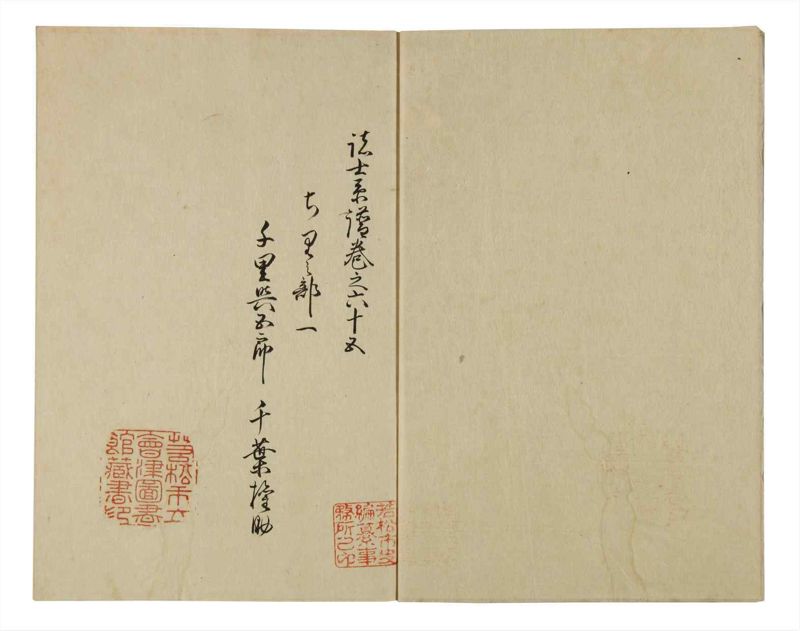 諸士系譜巻之六十五
ち里之部一
千里與五郎 千葉権助
若松市史
編纂事
務所之印
若松市立
會津圖書
館藏書印